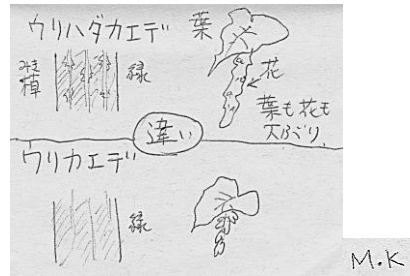 ウリハダカエデ
葉
緑
花
葉も花も
大ぶり
違い
ウリカエデ
緑
M.K